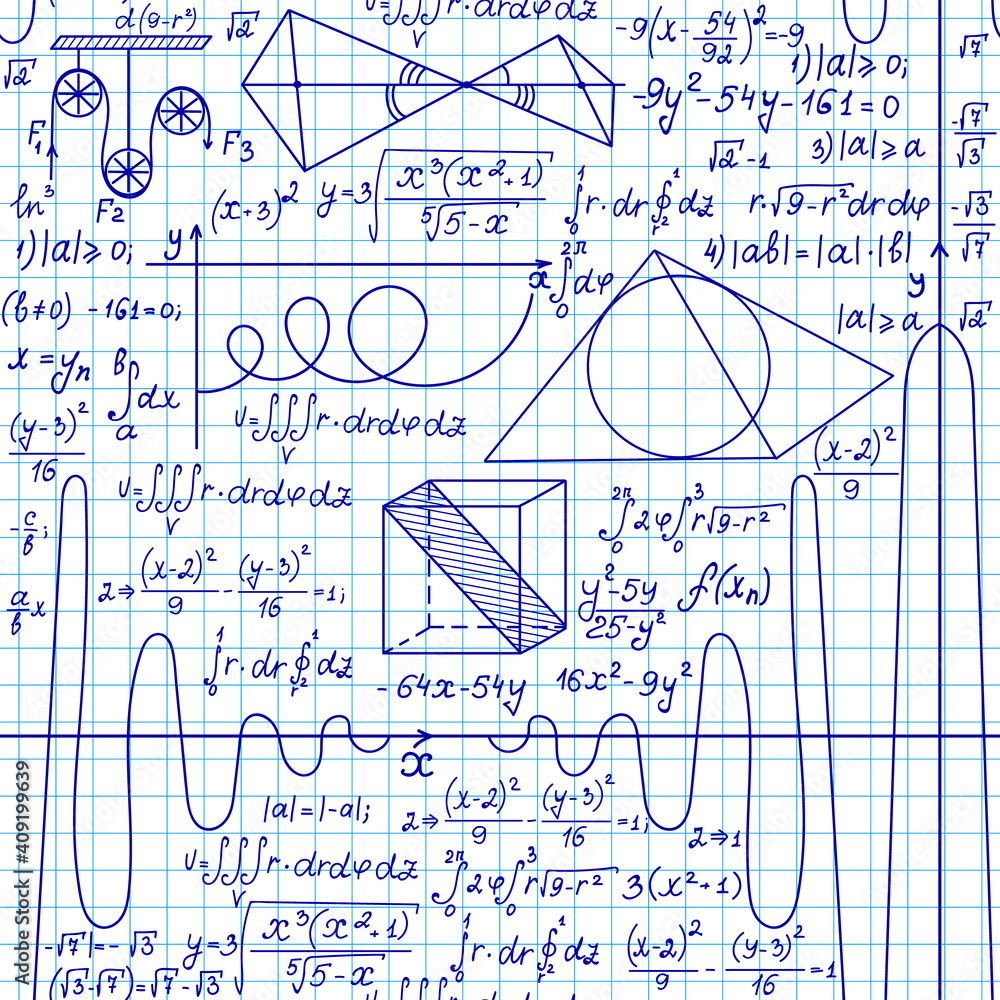 d(9-r²)
√2
V=∫∫∫r·drdφdz
V
-9(x-54/92)²=-9
√7
√2
1)|a|⩾0;
-9y²-54y-161=0
F₁
F3
-√7/√3
√2-1
3)|a|⩾a
ln³
F2
(x+3)²
y=3√(x³(x²+1)/⁵√5-x)
∫₀¹r·dr∮_{r²}^1dz
r·√9-r²drdφ
-√3/√7
1)|a|⩾0;
y
x
∫₀^{2π}dφ
4)|ab|=|a|·|b|
y
(b≠0)
-161=0;
|a|⩾a
√2
x=yₙ
∫ₐᵇdx
(y-3)²/16
V=∫∫∫r·drdφdz
V
(x-2)²/9
V=∫∫∫r·drdφdz
V
∫₀^{2π}2φ∫₀³r√9-r²
-c/b;
2⇒(x-2)²/9-(y-3)²/16=1;
y²-5y/25-y²
f(xₙ)
a/b x
∫₀¹r·dr∮_{r²}^1dz
-64x-54y
16x²-9y²
x
|a|=|-a|;
2⇒(x-2)²/9-(y-3)²/16=1;
2⇒1
V=∫∫∫r·drdφdz
V
∫₀^{2π}2φ∫₀³r√9-r²
3(x²+1)
-√7|=-√3
y=3√(x³(x²+1)/⁵√5-x)
∫₀¹r·dr∮_{r²}^1dz
(x-2)²/9-(y-3)²/16=1
(√3-√7)=√7-√3
Adobe Stock | #409199639